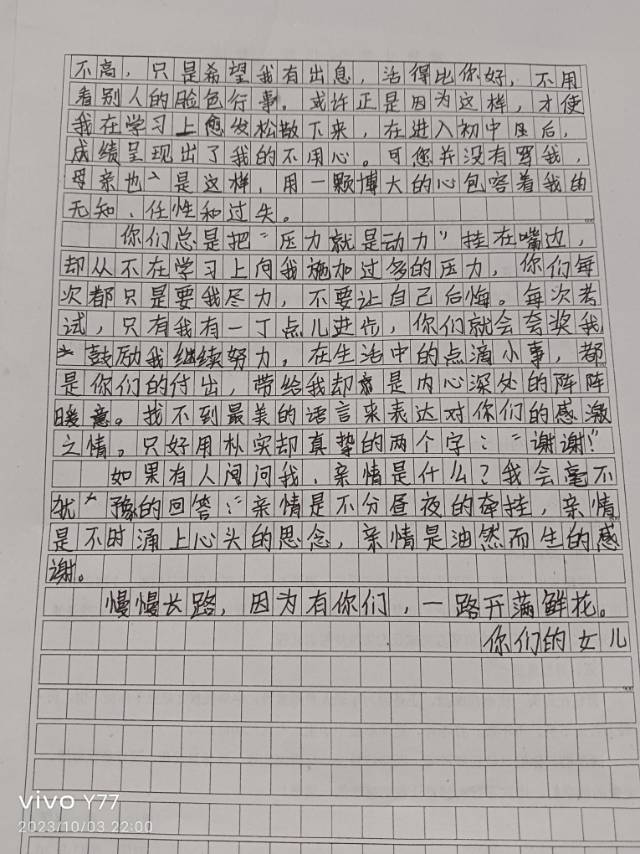 不高，只是希望我有出息，活得比你好，不用
看别人的脸色行事。或许正是因为这样，才使
我在学习上愈发松散下来，在进入初中后，
成绩呈现出了我的不用心。可您并没有骂我，
母亲也是这样，用一颗博大的心包容着我的
无知、任性和过失。
你们总是把“压力就是动力”挂在嘴边，
却从不在学习上向我施加过多的压力，你们每
次都只是要我尽力，不要让自己后悔。每次考
试，只有我有一丁点儿进步，你们就会夸奖我
鼓励我继续努力，在生活中的点滴小事，都
是你们的付出，带给我却是内心深处的阵阵
暖意。找不到最美的语言来表达对你们的感激
之情。只好用朴实却真挚的两个字：“谢谢！”
如果有人问我，亲情是什么？我会毫不
犹豫的回答：“亲情是不分昼夜的牵挂，亲情
是不时涌上心头的思念，亲情是油然而生的感
谢。
慢慢长路，因为有你们，一路开满鲜花。
你们的女儿
vivo Y77
2023/10/03 22:00